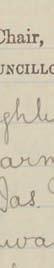 Chair,
UNCILLO
ghl
arm
Jas.
wa